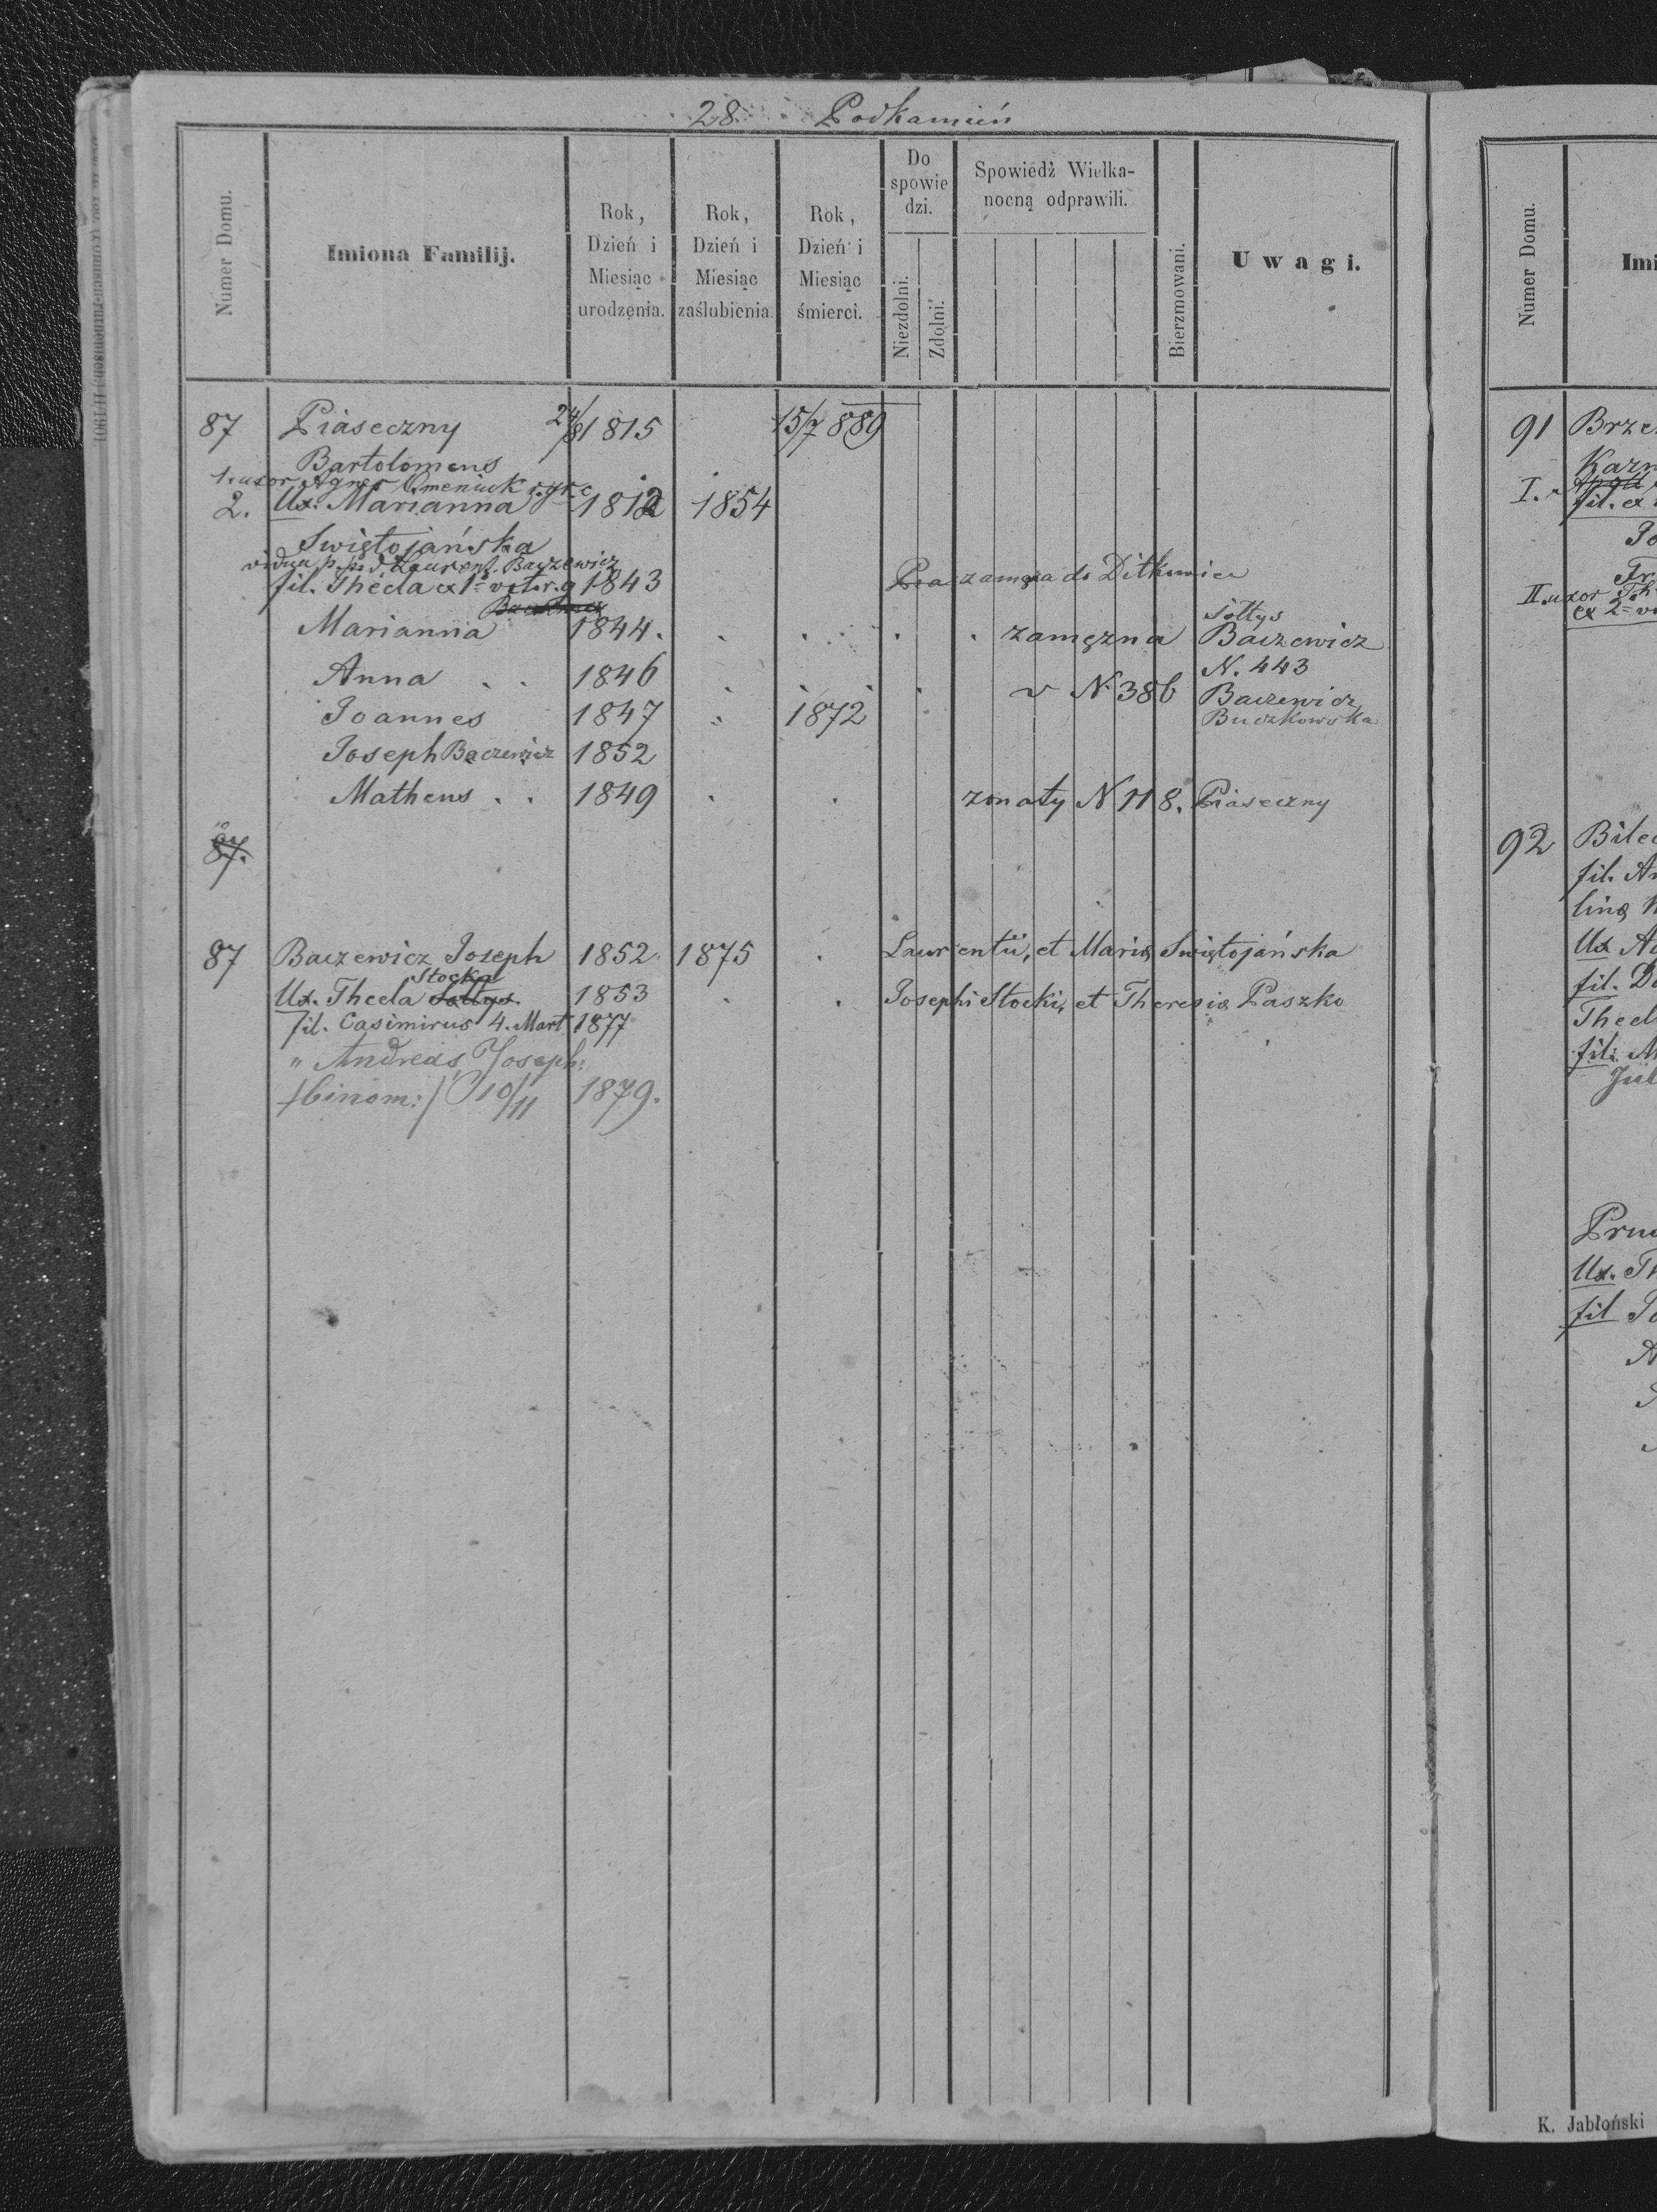 28. Podkamień
Numer Domu.
Imiona Familij.
Rok, Dzień i Miesiąc urodzenia.
Rok, Dzień i Miesiąc zaślubienia.
Rok, Dzień i Miesiąc śmierci.
Do spowiedzi.
Niezdolni.
Zdolni.
Spowiedź Wielkanocną odprawili.
Bierzmowani.
Uwagi.
87 Piaseczny 24/8 1815 15/7 889
Bartolomeus
1. uxor Agnes Omeniuk r. gr. c
2. Ux. Marianna 1812 1854
Swiętojańska
vidua p. Laurent. Baczewicz
fil. Thecla ex 1º vot. r. g 1843 zamęża do Ditkowiec
Marianna 1844. zamęzna Baczewicz
Sołtys
Anna . . 1846 v N. 386 Baczewicz
N. 443
Joannes 1847 1872 Buczkowska
Joseph Baczewicz 1852
Matheus . . 1849 zonaty N 118. Piaseczny
87.
87 Baczewicz Joseph 1852. 1875 Laurentii, et Maria Swiętojańska
Stocka
Ux. Thecla Sołtys 1853 Josephi Stocki, et Theresia Paszko
fil. Casimirus 4. Mart. 1877
" Andreas, Joseph:
/binom:/ 10/11 1879.
Numer Domu.
Imi
91 Brze
Kazm
I.
fil. ex
Jo
Fr
II. uxor Th
ex 2º vo
92 Bilec
fil. An
lina
Ux Ag
fil. Do
Thecl
fil: M
Jul
Pru
Ux. Th
fil Jo
A
K. Jabłoński